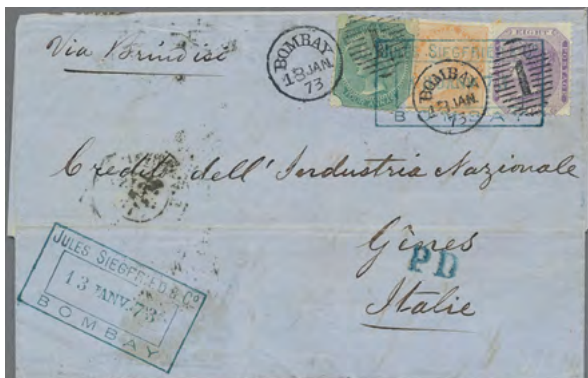 Via Brindisi
BOMBAY
18 JAN
73
JULES SIEGFRIED
BOMBAY
BOMBAY
JAN
73
1
EIGHT
Credit dell'Industria Nazionale
Gênes
PD
Italie
JULES SIEGFRIED & Cº
13 JANV. 73
BOMBAY